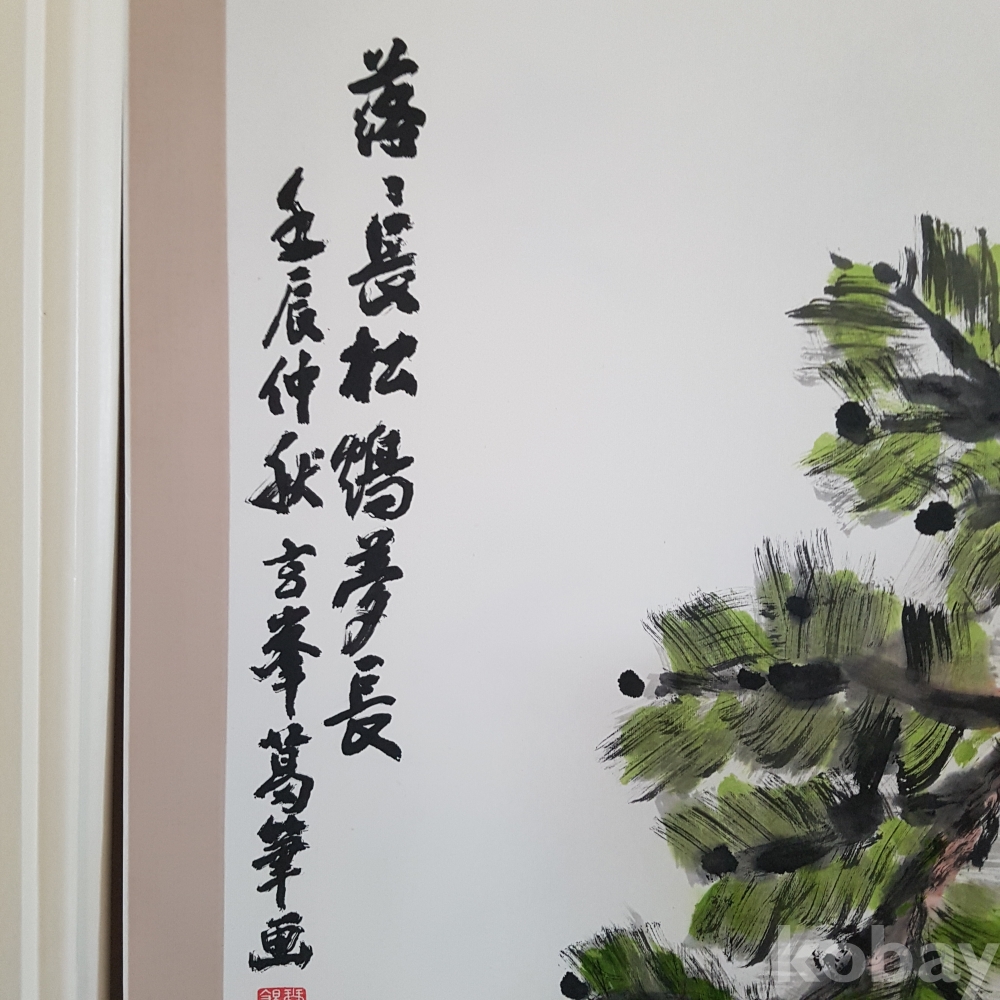 落〻長松鶴夢長
壬辰仲秋 玄峯葛筆画
kobay